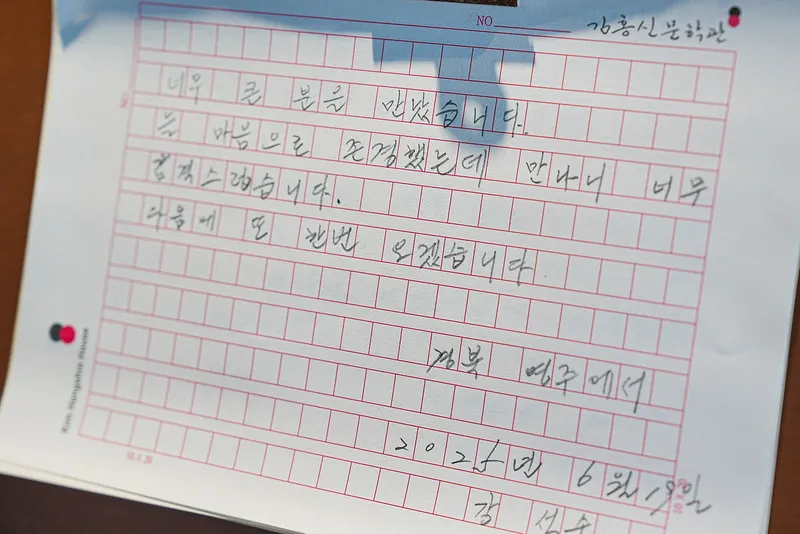 NO
김홍신문학관
너무 큰 분을 만났습니다.
늘 마음으로 존경했는데 만나니 너무
감격스럽습니다.
다음에 또 한번 오겠습니다
경북 영주에서
2025년 6월 18일
선수
NO
Kim Hongshin House
10 X 20
10 X 20